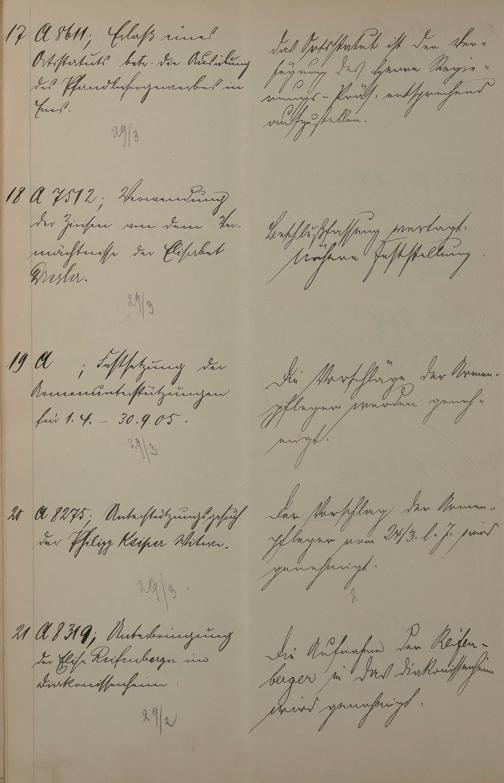 17 A 8611; Erlaß eines
Ortsstatuts betr. die Ausübung
des Pfandleihgewerbes in
Ems.
29/3
das Ortsstatut ist der Ver-
fügung des Herrn Regie-
rungs-Präs. entsprechend
aufzustellen.
18 A 7512; Verwendung
der Zinsen von dem Ver-
mächtnisse der Elisabet
29/3
Beschlußfassung vertagt.
Nähere Feststellung.
19 A ; Festsetzung der
Armenunterstützungen
für 1.4. – 30.9.05.
29/3
Die Vorschläge der Armen-
pfleger werden geneh-
migt.
20 A 8275; Unterstützungsgesuch
der Philipp Kaiser Witwe.
29/3.
Der Vorschlag der Armen-
pfleger vom 24/3. l. J. wird
genehmigt.
2
21 A 8319; Unterbringung
der Elise Reifenberger im
Diakonissenheim
29/2
Die Aufnahme der Reifen-
berger in das Diakonissenheim
wird genehmigt.